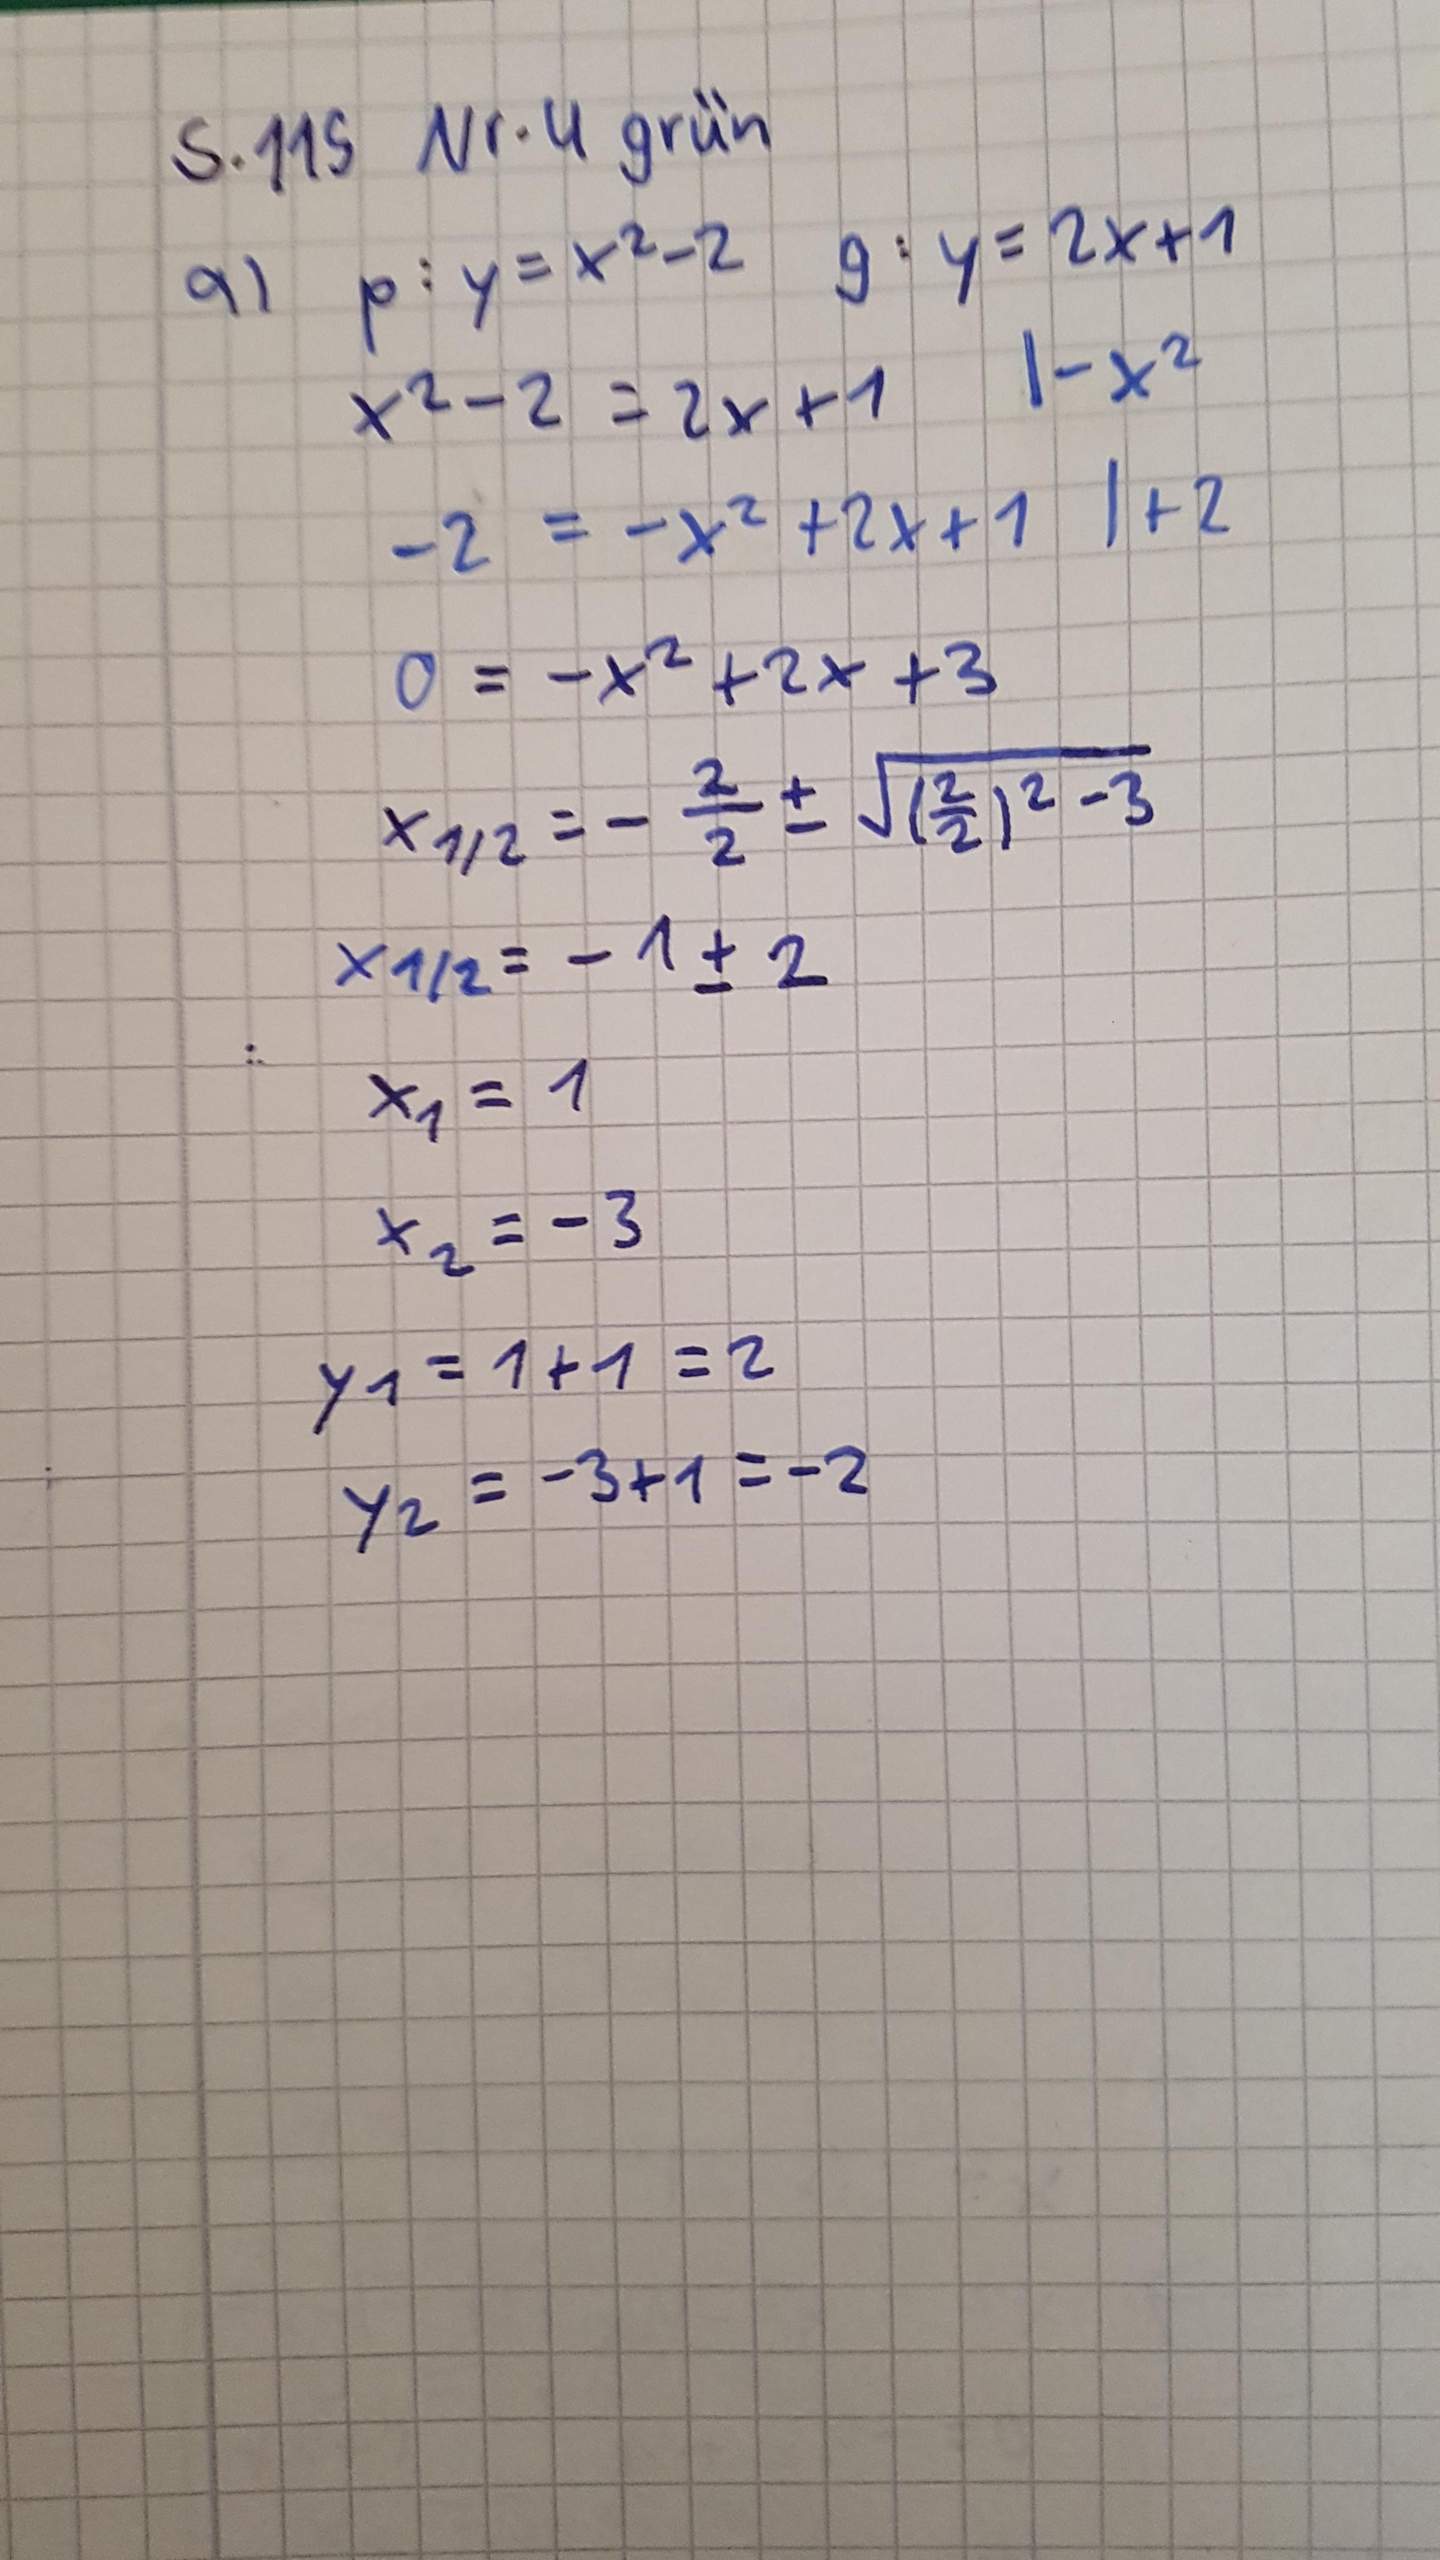 S.115 Nr.4 grün
a) p: y = x² - 2 g: y = 2x + 1
x² - 2 = 2x + 1 | - x²
-2 = -x² + 2x + 1 | + 2
0 = -x² + 2x + 3
x1/2 = - 2/2 ± √((2/2)² - 3)
x1/2 = - 1 ± 2
x₁ = 1
x₂ = -3
y1 = 1 + 1 = 2
y2 = -3 + 1 = -2